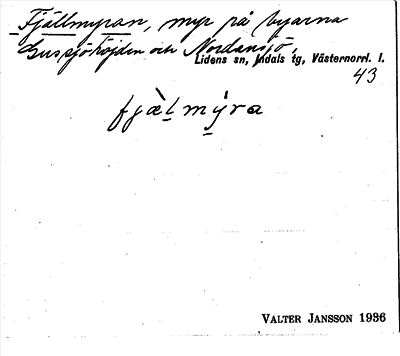 Fjällmyran, myr på byarna
Gussjöhöjden och Nordansjö,
Lidens sn, Indals tg, Västernorrl. l.
43
fjæ̀l mýra
VALTER JANSSON 1936